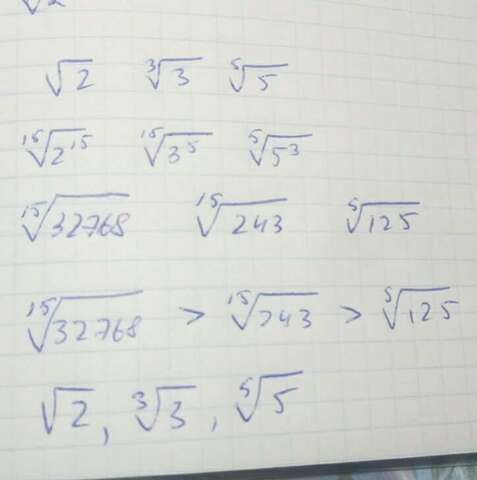 √2 ∛3 ⁵√5
¹⁵√2¹⁵ ¹⁵√3⁵ ⁵√5³
¹⁵√32768 ¹⁵√243 ⁵√125
¹⁵√32768 > ¹⁵√243 > ⁵√125
√2, ∛3, ⁵√5